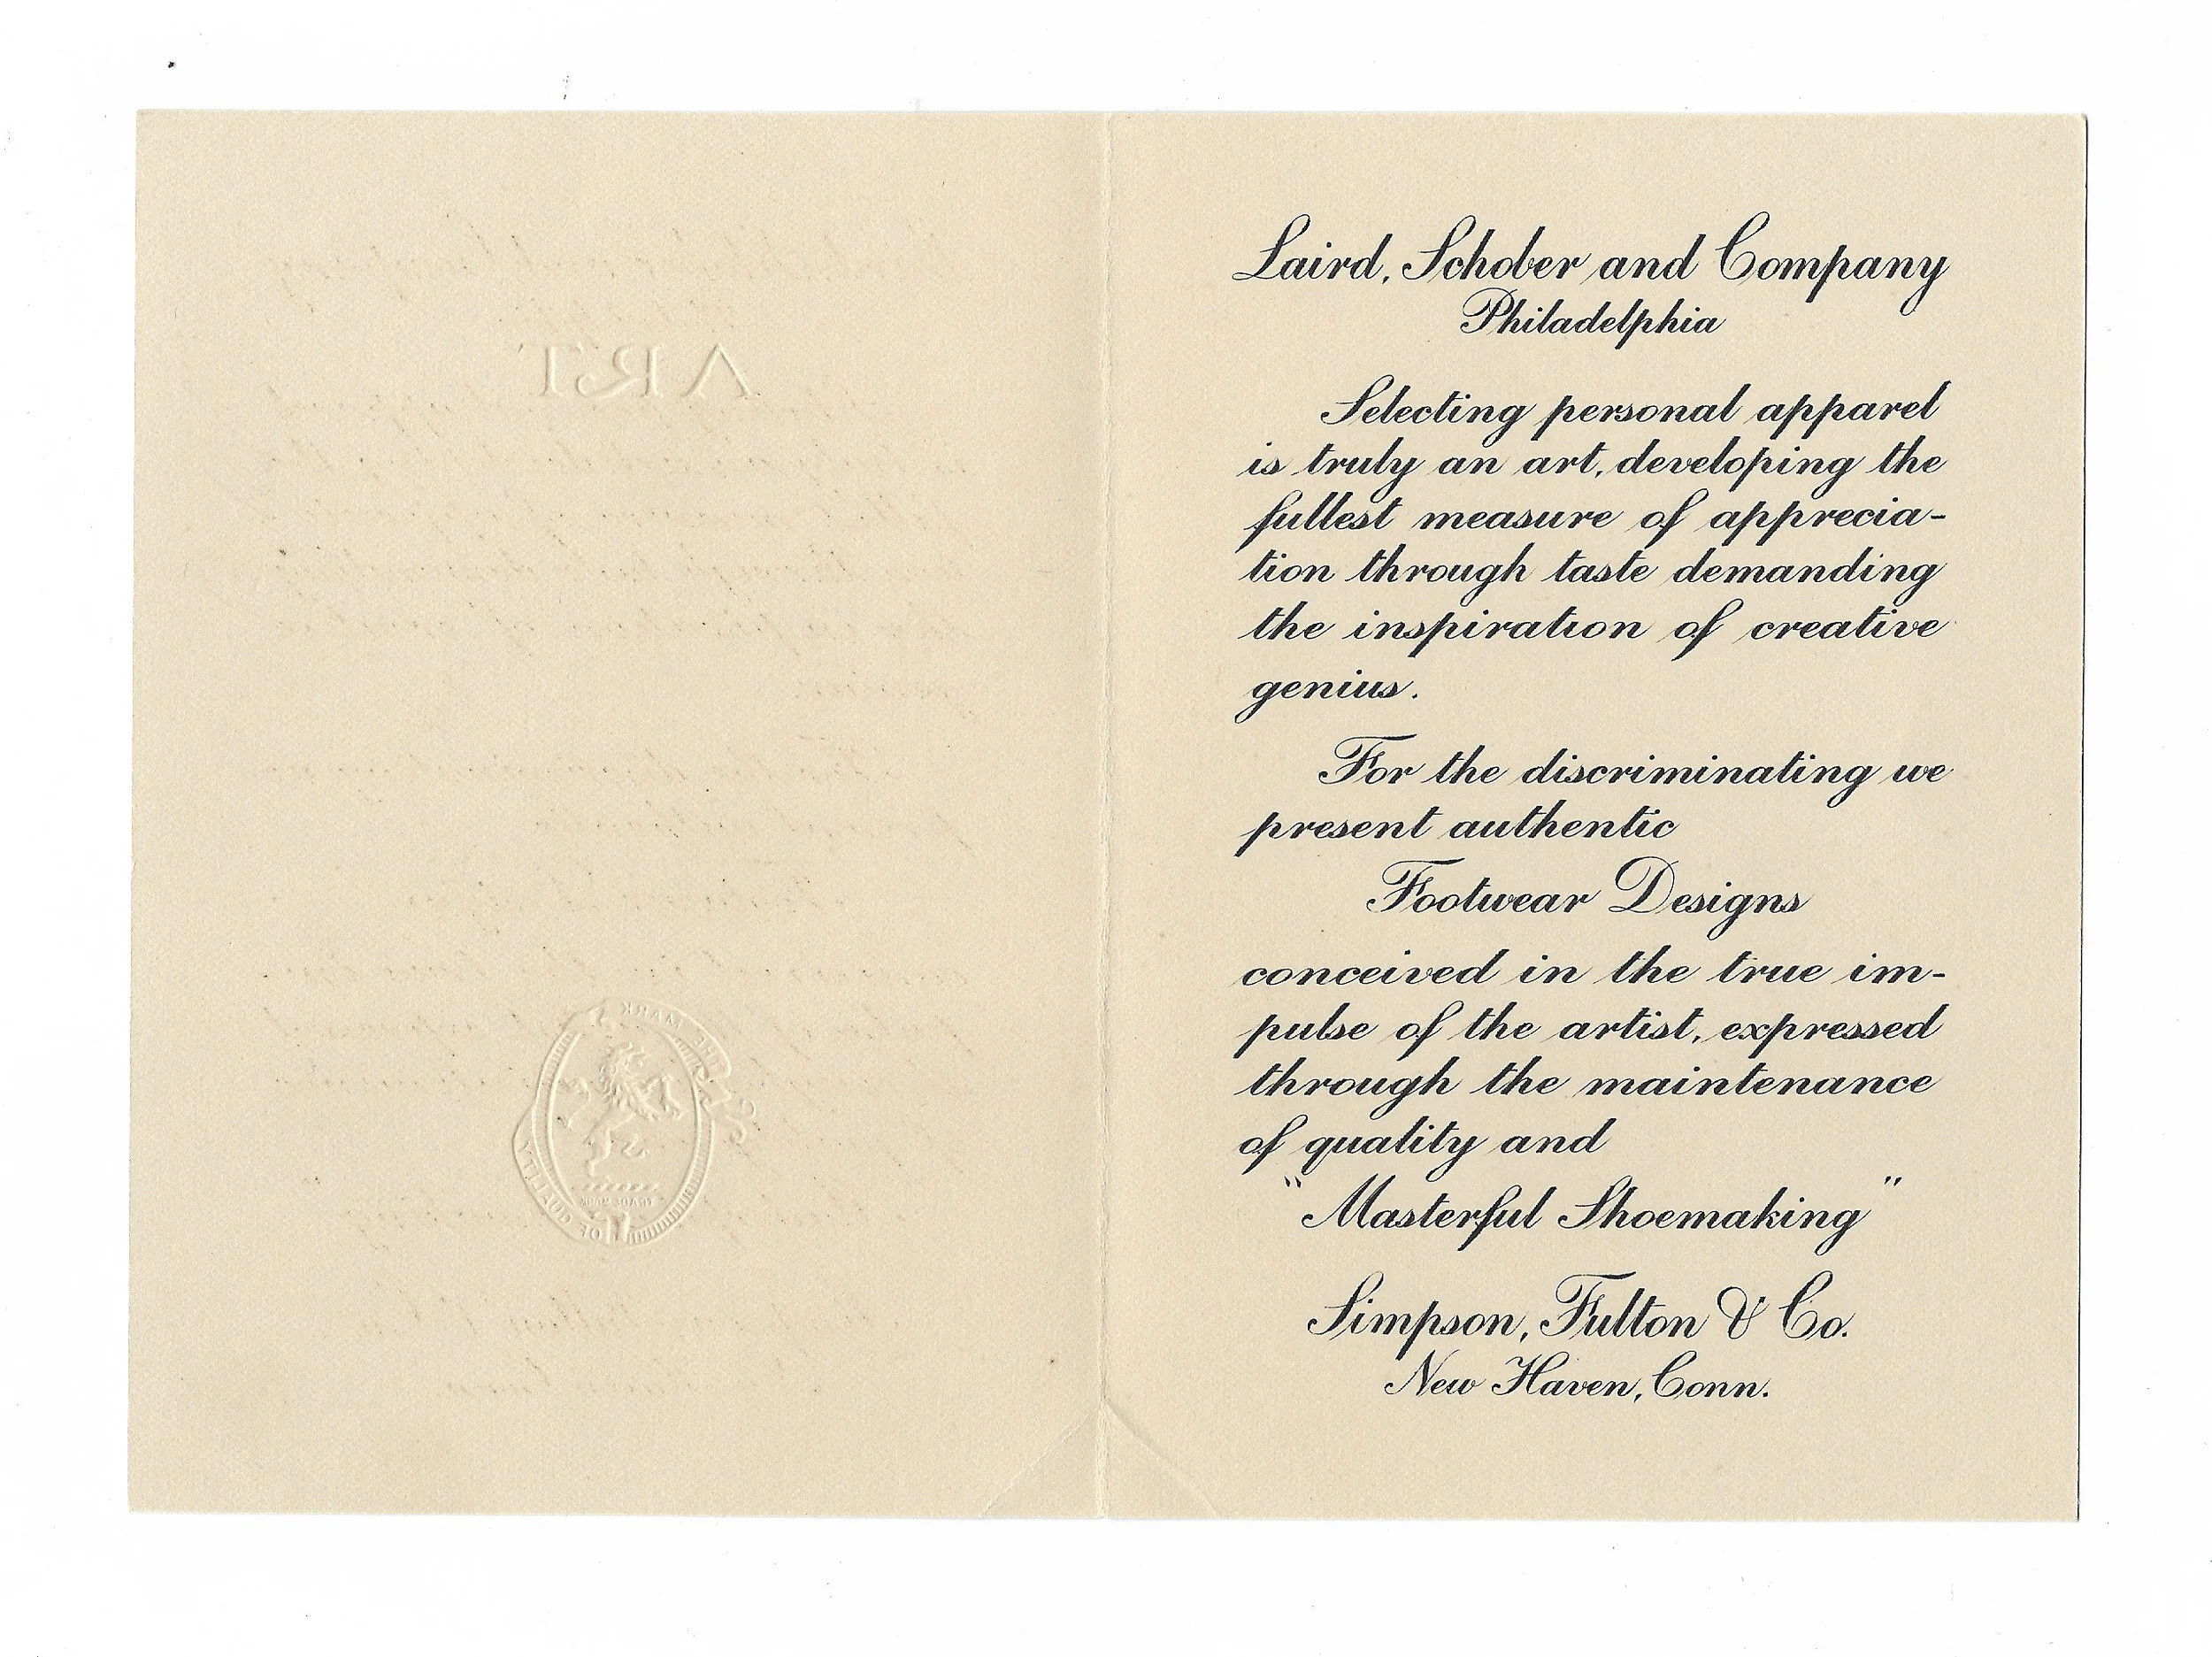 ART
THE MARK
OF QUALITY
TRADE MARK
Laird, Schober and Company
Philadelphia
Selecting personal apparel
is truly an art, developing the
fullest measure of apprecia-
tion through taste demanding
the inspiration of creative
genius.
For the discriminating we
present authentic
Footwear Designs
conceived in the true im-
pulse of the artist, expressed
through the maintenance
of quality and
"Masterful Shoemaking"
Simpson, Fulton & Co.
New Haven, Conn.